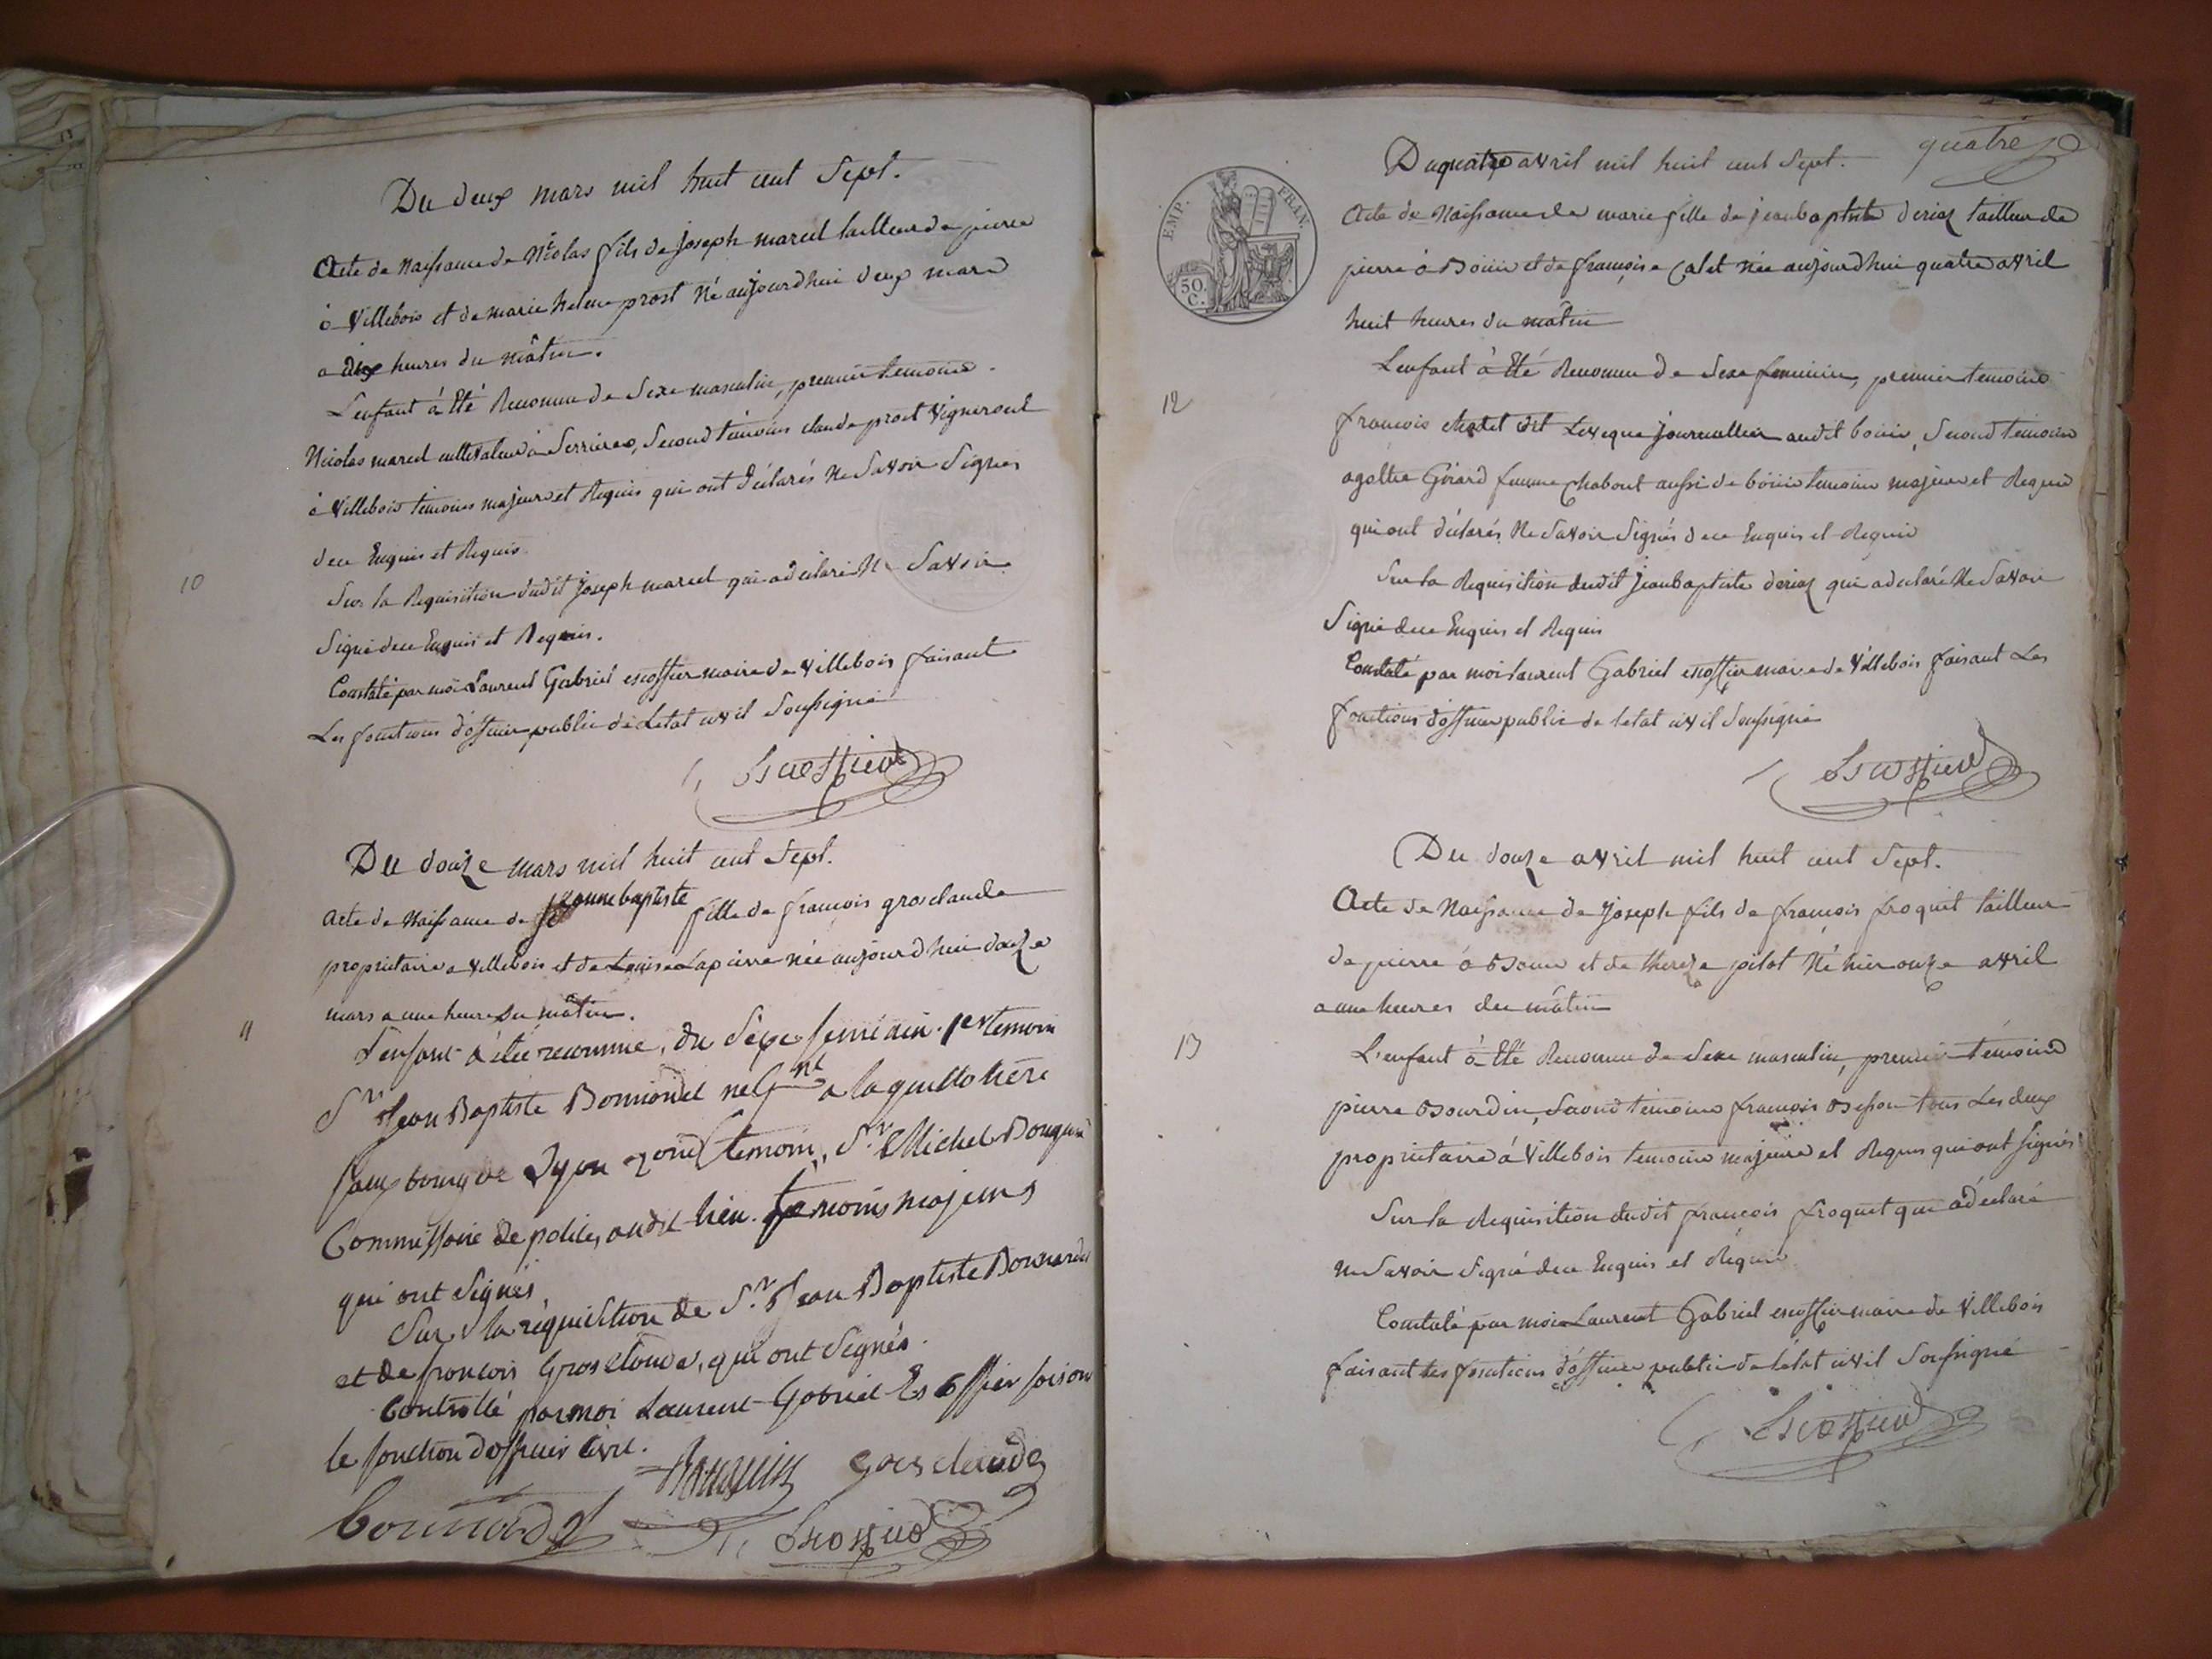 Du deux mars mil huit cent Sept.
Acte de Naissance de Nicolas fils de joseph marcel tailleur de pierre
à Villebois et de marie helene prost Né aujourdhui deux mars
a dix heures du mâtin.
L'enfant à Eté Reconnu de Sexe masculin, premier temoins
Nicolas marcel cultivateur à Serrieres, Second temoins claude prost Vigneront
à Villebois temoins majeurs et Requis qui ont déclarés Ne Savoir Signer
de ce Enquis et Requis
10
Sur la Requisition dudit joseph marcel qui a déclaré Ne Savoir
Signé de ce Enquis et Requis.
Constaté par moi Laurent Gabriel escoffier maire de Villebois faisant
Les fonctions d'officier public de Letat civil Soussigné
Escoffier
Du douze mars mil huit cent Sept.
Acte de Naissance de jeanne baptiste fille de francois grosclaude
propriétaire a Villebois et de Louise Lapierre née aujourdhui douze
mars a une heure du mâtin.
11
L'enfant à été reconnue, du Sexe feminin. 1er temoin
Sr Jean Baptiste negnt a la guillotiere
faux bourg de Lyon 2ond temoin, Sr Michel
Commissaire de police, audit lieu. temoins majeurs
qui ont Signés,
Sur la réquisition de Sr Jean Baptiste
et de francois Grosclaude, qui ont Signés.
Controllé par moi Laurent Gabriel Escoffier faisant
le fonction d'officier civil.
grosclaude
Escoffier
quatre
Du quatre avril mil huit cent Sept.
EMP. FRAN.
50. C.
Acte de Naissance de marie fille de jean baptiste deriaz tailleur de
pierre à Bouis et de françoise Calet née aujourdhui quatre avril
huit heures du mâtin
L'enfant à Eté Reconnu de Sexe feminin, premier temoins
12
francois dit Leveque journallier audit bouis, Second temoins
agathe Girard femme Chabout aussi de bouis temoins majeurs et Requis
qui ont déclarés Ne Savoir Signés de ce Enquis et Requis
Sur la Requisition dudit jean baptiste deriaz qui a declaré Ne Savoir
Signé de ce Enquis et Requis
Constaté par moi laurent Gabriel escoffier maire de Villebois faisant Les
fonctions d'officier public de letat civil Soussigné
Escoffier
Du douze avril mil huit cent Sept.
Acte de Naissance de joseph fils de françois froquet tailleur
de pierre à Bouis et de thereze pitot Né hier onze avril
a une heures du mâtin
13
L'enfant à Eté Reconnu de Sexe masculin, premier temoins
pierre Bourdin, Second temoins françois Besson tous Les deux
propriétaire à Villebois temoins majeurs et Requis qui ont Signés
Sur la Requisition dudit françois froquet qui a déclaré
ne Savoir Signé de ce Enquis et Requis
Constaté par moi Laurent Gabriel escoffier maire de Villebois
faisant les fonctions d'officier public de letat civil Soussigné
Escoffier